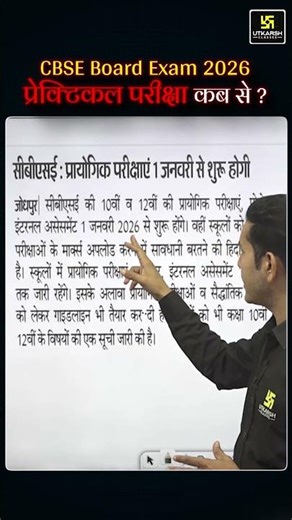 UTKARSH
CLASSES
CBSE Board Exam 2026
प्रेक्टिकल परीक्षा कब से ?
सीबीएसई : प्रायोगिक परीक्षाएं 1 जनवरी से शुरू होगी
जोधपुर| सीबीएसई की 10वीं व 12वीं की प्रायोगिक परीक्षाएं,
इंटरनल असेसमेंट 1 जनवरी 2026 से शुरू होंगे। वहीं स्कूलों को
परीक्षाओं के मार्क्स अपलोड में सावधानी बरतने की
है। स्कूलों में प्रायोगिक इंटरनल असेसमेंट
तक जारी रहेंगे। इसके अलावा व सैद्धांतिक
को लेकर गाइडलाइन भी तैयार कर दी को भी कक्षा 10वीं
12वीं के विषयों की एक सूची जारी की है।
UTKARSH
CLASSES